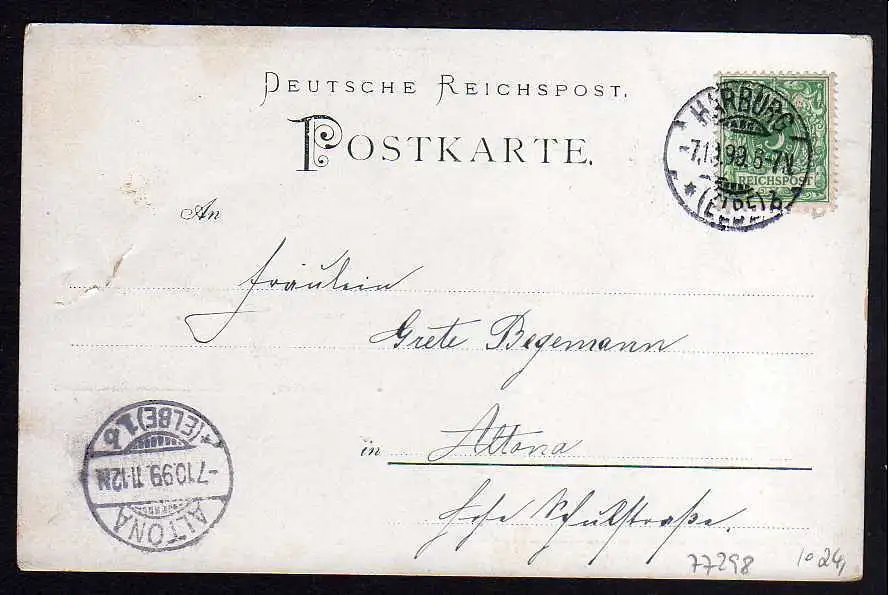 DEUTSCHE REICHSPOST.
POSTKARTE.
HARBURG
-7.10.99.5-7N.
(ELBE)
REICHSPOST
An
Fräulein
Grete Begemann
in Altona
Hohe Schulstraße.
ALTONA
-7.10.99.11-12N
(ELBE)1.b
77298
10 24,